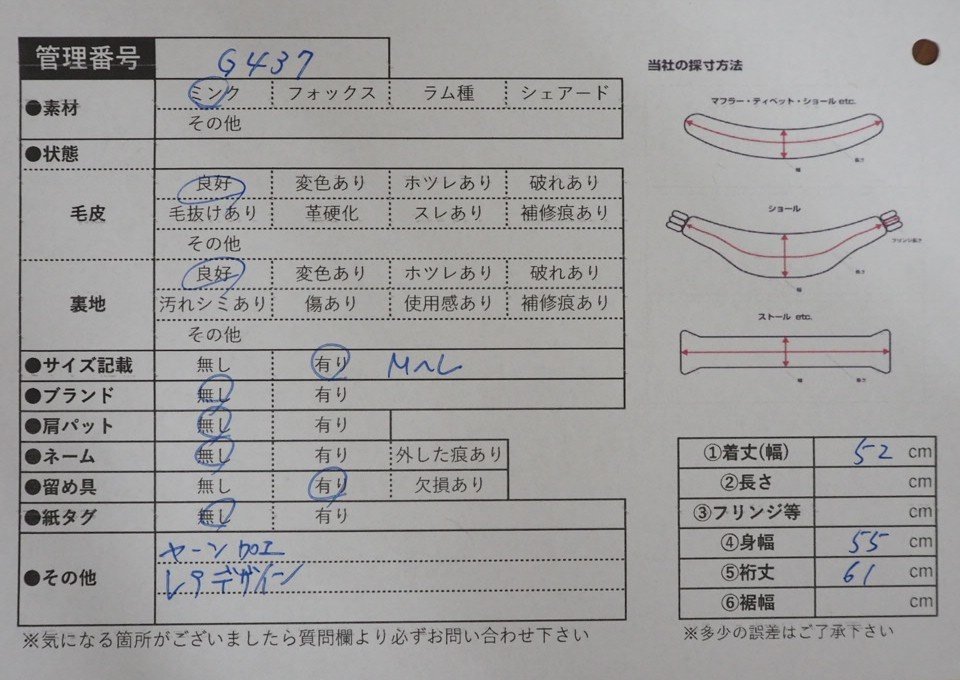 管理番号 G437
●素材 ミンク フォックス ラム種 シェアード
その他
●状態
毛皮 良好 変色あり ホツレあり 破れあり
毛抜けあり 革硬化 スレあり 補修痕あり
その他
裏地 良好 変色あり ホツレあり 破れあり
汚れシミあり 傷あり 使用感あり 補修痕あり
その他
●サイズ記載 無し 有り M〜L
●ブランド 無し 有り
●肩パット 無し 有り
●ネーム 無し 有り 外した痕あり
●留め具 無し 有り 欠損あり
●紙タグ 無し 有り
●その他 ヤーン加工
レアデザイン
※気になる箇所がございましたら質問欄より必ずお問い合わせ下さい
当社の採寸方法
マフラー・ティペット・ショール etc.
長さ
幅
ショール
フリンジ長さ
長さ
幅
ストール etc.
幅
長さ
①着丈(幅) 52 cm
②長さ cm
③フリンジ等 cm
④身幅 55 cm
⑤裄丈 61 cm
⑥裾幅 cm
※多少の誤差はご了承下さい